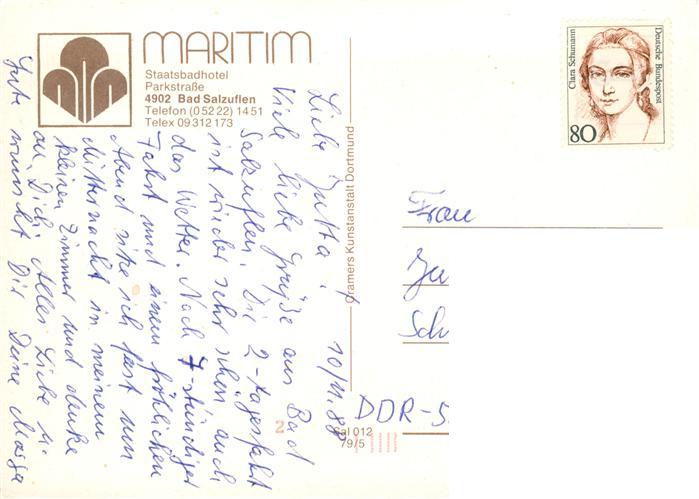 MARITIM
Staatsbadhotel
Parkstraße
4902 Bad Salzuflen
Telefon (0 52 22) 14 51
Telex 09 312 173
Clara Schumann
Deutsche Bundespost
80
Cramers Kunstanstalt Dortmund
10/11.88
Liebe Jutta!
Viele liebe Grüße aus Bad
Salzuflen. Die 2-tagesfahrt
ist wieder sehr schön, auch
das Wetter. Nach 7-stündiger
Fahrt und einem fröhlichen
Abend sitze ich fast um
Mitternacht in meinem
kleinen Zimmer und denke
an Dich. Alles Liebe u.
Gute wünscht Dir Deine
Frau
Ju
Sch
DDR-5
2
Sal 012
79/5